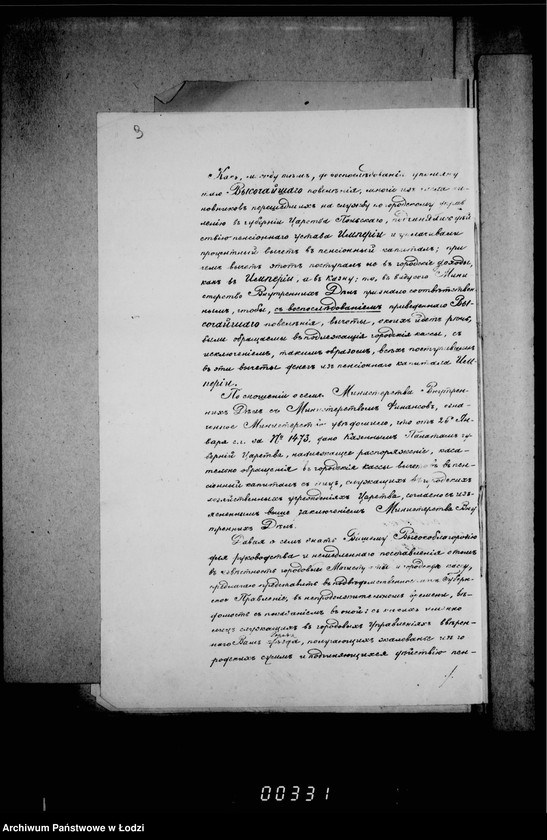 3
Какъ, между тѣмъ, до воспослѣдованія упомяну
таго Высочайшаго повелѣнія, многіе изъ чи-
новниковъ перешедшихъ на службу по городскому управ
ленію въ губерніи Царства Польскаго, подчинялись дѣй
ствію пенсіоннаго устава Имперіи и уплачивали
процентный вычетъ въ пенсіонный капиталъ; при
чемъ вычетъ этотъ поступалъ не въ городскіе доходы,
какъ въ Имперіи, а въ казну; то, въ виду сего Мини
стерство Внутреннихъ Дѣлъ признало соотвѣтствен
нымъ, чтобы, съ воспослѣдованіемъ приведеннаго Вы-
сочайшаго повелѣнія, вычеты, о коихъ идетъ рѣчь,
были обращаемы въ подлежащія городскія кассы, съ
исключеніемъ, такимъ образомъ, всѣхъ поступившихъ
въ эти вычеты денегъ изъ пенсіоннаго капитала Им
періи.
По сношеніи о семъ Министерства Внутрен-
нихъ Дѣлъ съ Министерствомъ Финансовъ, озна-
ченное Министерство увѣдомило, что отъ 26 Ян-
варя с.г. за № 1473, дано Казеннымъ Палатамъ гу-
берній Царства, надлежащее распоряженіе, каса-
тельно обращенія въ городскія кассы вычетовъ въ пен-
сіонный капиталъ съ лицъ, служащихъ въ городскихъ
хозяйственныхъ учрежденіяхъ Царства, согласно съ изъ-
ясненнымъ выше заключеніемъ Министерства Вну
треннихъ Дѣлъ.
Давая о семъ знать Вашему Высокоблагородію
для руководства и немедленнаго поставленія о томъ
въ извѣстность городовые Магистраты и городскую кассу,
предлагаю представить въ Губерн-
ское Правленіе, въ непродолжительномъ времени, вѣ-
домость съ показаніемъ въ оной: съ какихъ именно
лицъ служащихъ въ городовыхъ Управленіяхъ ввѣрен-
наго Вамъ уѣзда, получающихъ жалованье изъ го
родскихъ суммъ и подчиняющихся дѣйствію пен-
./.
00331
Archiwum Państwowe w Łodzi